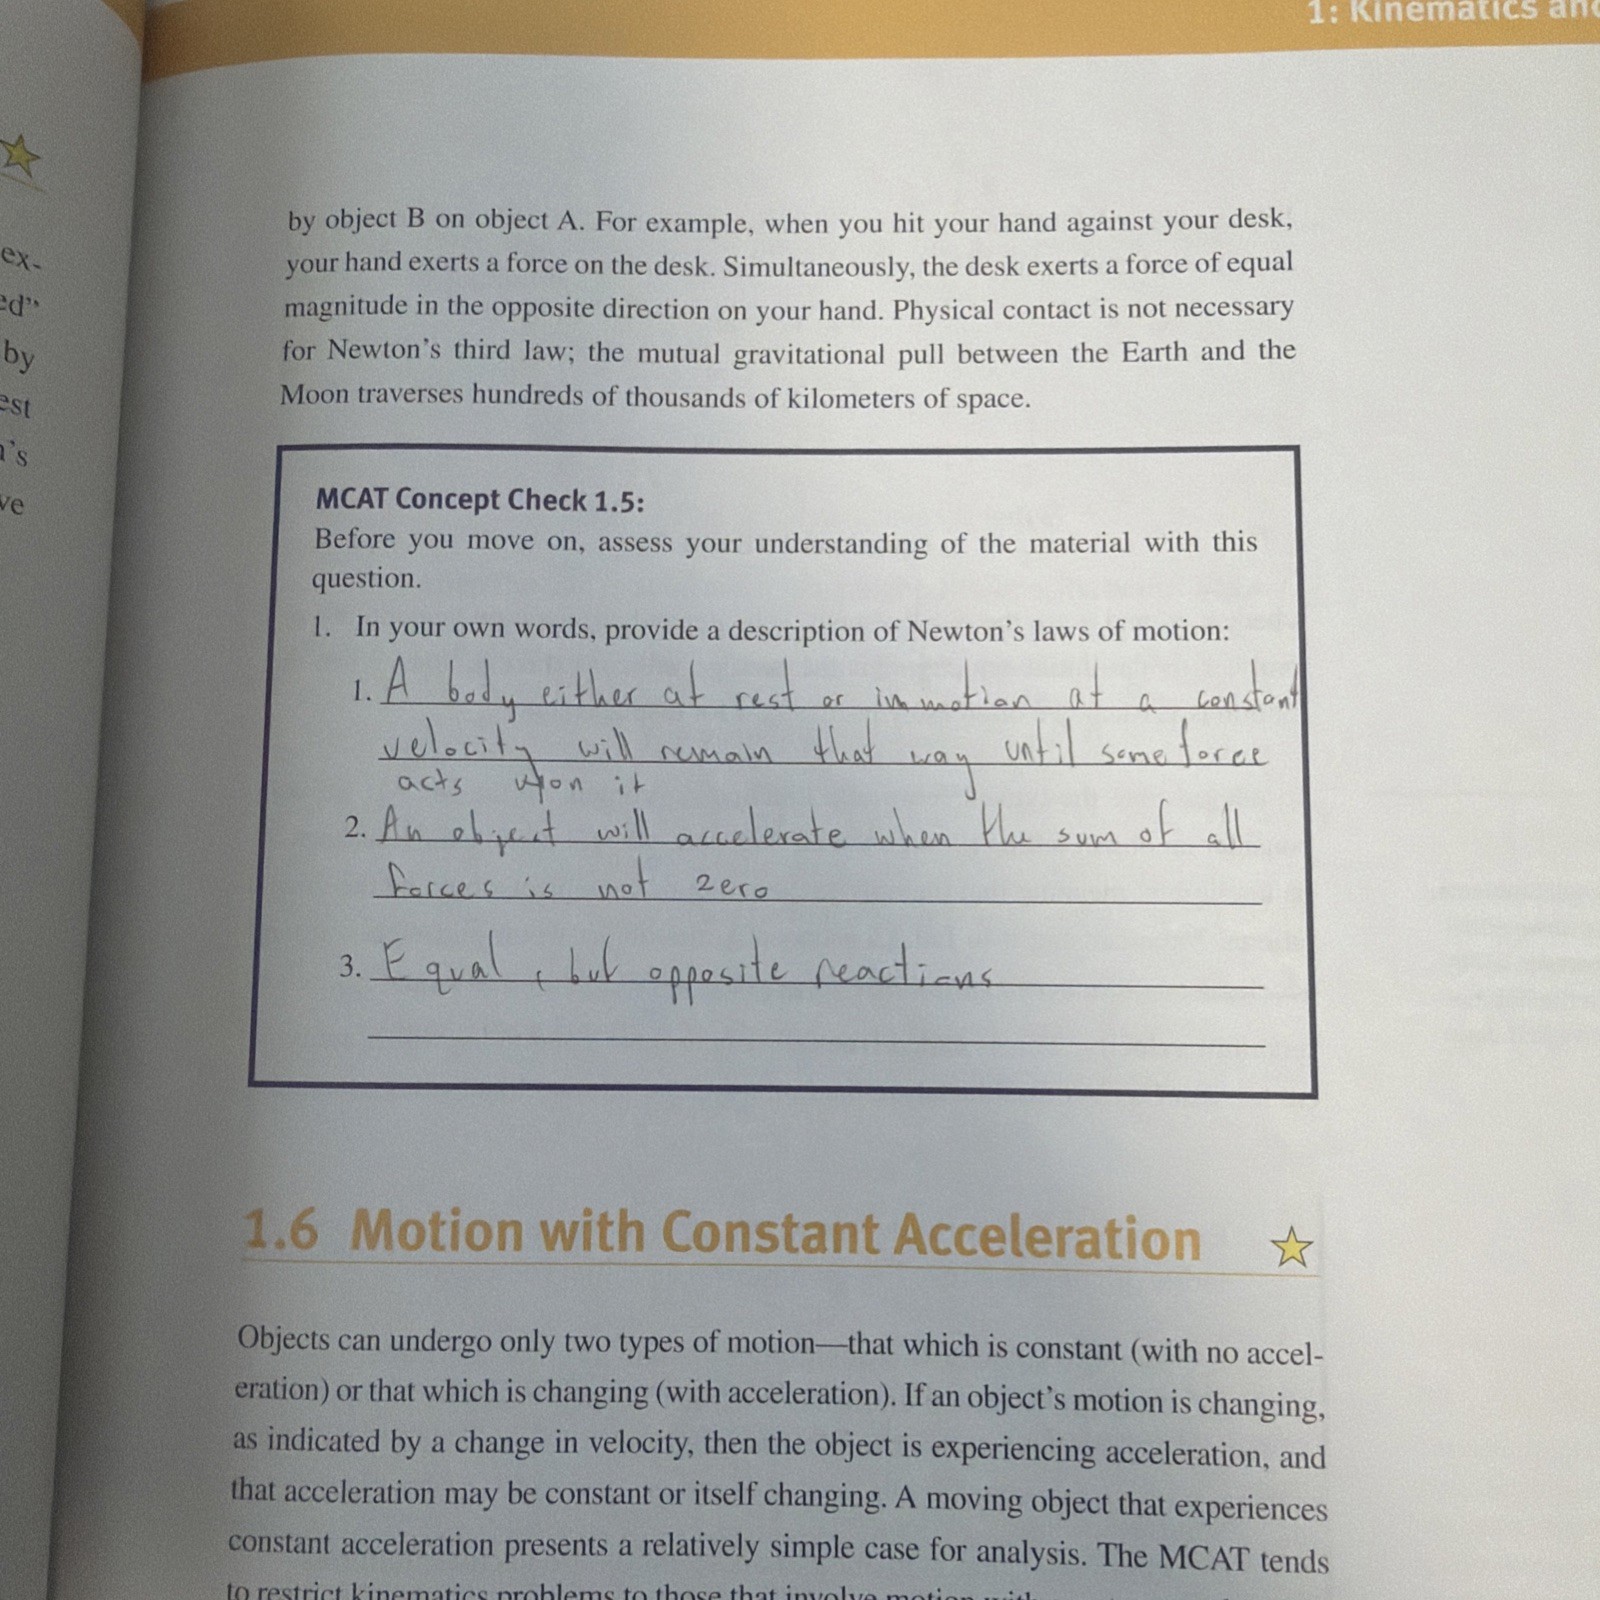 1: Kinematics and
ex-
ed”
by
est
n’s
ve
by object B on object A. For example, when you hit your hand against your desk,
your hand exerts a force on the desk. Simultaneously, the desk exerts a force of equal
magnitude in the opposite direction on your hand. Physical contact is not necessary
for Newton’s third law; the mutual gravitational pull between the Earth and the
Moon traverses hundreds of thousands of kilometers of space.
MCAT Concept Check 1.5:
Before you move on, assess your understanding of the material with this
question.
1. In your own words, provide a description of Newton’s laws of motion:
1. A body either at rest or in motion at a constant
velocity will remain that way until some force
acts upon it
2. An object will accelerate when the sum of all
forces is not zero
3. Equal, but opposite reactions
1.6 Motion with Constant Acceleration
Objects can undergo only two types of motion—that which is constant (with no accel-
eration) or that which is changing (with acceleration). If an object’s motion is changing,
as indicated by a change in velocity, then the object is experiencing acceleration, and
that acceleration may be constant or itself changing. A moving object that experiences
constant acceleration presents a relatively simple case for analysis. The MCAT tends
to restrict kinematics problems to those that involve motion with